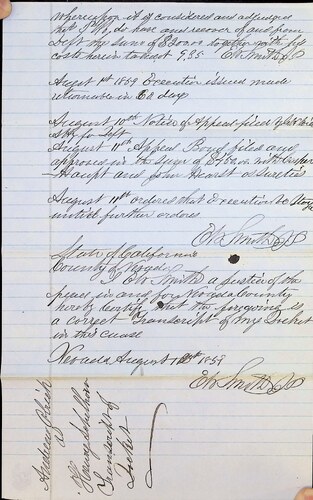 whereupon it is considered and adjudged
that Plff do have and recover of and from
Deft the sum of $300 together with his
costs herein taxed 9,35 EW Smith JP
August 1st 1859 Execution issued made
returnable in 60 days
August 10th Notice of Appeal filed by
Atty for Deft
August 11th Appeal Bond filed and
approved in the sum of with
Haupt and John Hearst as sureties
August 11th ordered that Execution be Stayed
until further orders
EW Smith JP
State of California
County of Nevada
I EW Smith a Justice of the
peace in and for Nevada County
hereby certify that the foregoing is
a correct Transcript of my Docket
in this cause
Nevada August 1859
EW Smith JP
Andrew
vs
Transcript of
Docket